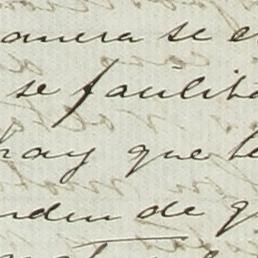 anera se e
se facilita
hay que te
nden de q